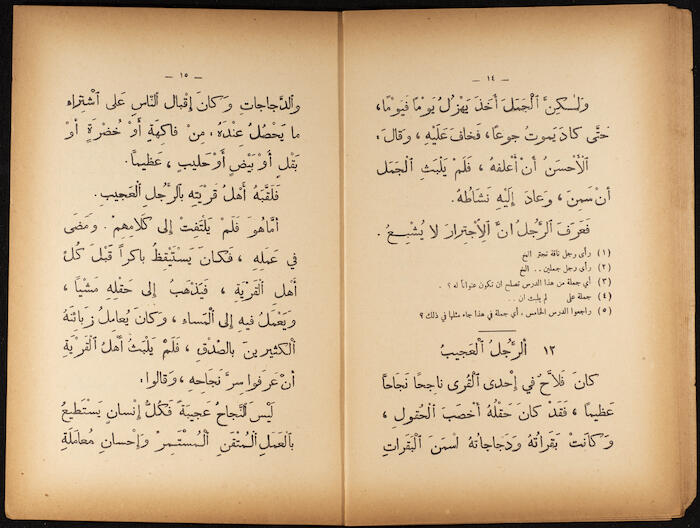 — ١٤ —
ولٰـكِنَّ ٱلْجَمَلَ أَخَذَ يَهْزُلُ يَوْمًا فَيَوْمًا،
حَتَّى كادَ يَموتُ جوعًا، فَخافَ عَلَيْهِ ، وَقالَ:
ٱلْأَحْسَنُ أَنْ أَعْلِفَهُ ، فَلَمْ يَلْبَثِ ٱلْجَمَلُ
أنْ سَمِنَ ، وَعادَ إِلَيْهِ نَشاطُهُ.
فَعَرَفَ ٱلرَّجُلُ انَّ ٱلْاِجْتِرارَ لا يُشْبِـعُ .
(١) رأى رجل ناقة تجتر الخ
(٢) رأى رجل جملين . . الخ
(٣) أي جملة من هذا الدرس تصلح ان تكون عنواناً له ؟ .
(٤) جملة على لم يلبث ان . .
(٥) راجعوا الدرس الخامس ، أي جملة في هذا جاء مثلها في ذلك ؟
١٢ ألرَّجُلُ ٱلْعَجيبُ
كانَ فَلاّحٌ في إِحْدى ٱلْقُرى ناجِحاً نَجاحاً
عَظيمًا ، فَقَدْ كانَ حَقْلُهُ أَخْصَبَ ٱلْحُقولِ ،
وَكانَتْ بَقَراتُهُ وَدَجاجاتُهُ اسْمَنَ ٱلْبَقَراتِ
— ١٥ —
وٱلدَّجاجاتِ وَكانَ إِقْبالُ ٱلنّاسِ عَلى ٱشْتِراءِ
ما يَحْصُلُ عِنْدَهُ ، مِنْ فاكِهَةٍ أَوْ خُضْرَةٍ أوْ
بَقْلٍ أَوْ بَيْضٍ أَوْ حَليبٍ ، عَظيمًا.
فَلَقَّبَهُ أَهْلُ قَرْيَتِهِ بِٱلرَّجُلِ ٱلْعَجيبِ.
أَمّا هُوَ فَلَمْ يَلْتَفِتْ إِلى كَلامِهِمْ. وَمَضى
في عَمَلِهِ ، فَكانَ يَسْتَيْقِظُ باكِراً قَبْلَ كُلِّ
أَهْلِ ٱلْقَرْيَةِ ، فَيَذْهَبُ إِلى حَقْلِهِ مَشْيًا ،
وَيَعْمَلُ فيهِ إِلى ٱلْمَساءِ ، وَكانَ يُعامِلُ زَبائِنَهُ
ٱلْكَثيرينَ بِالصِّدْقِ ، فَلَمْ يَلْبَثْ أَهْلُ ٱلْقَرْيَةِ
أنْ عَرَفوا سِرَّ نَجاحِهِ ، وَقالوا:
لَيْسَ ٱلنَّجاحُ عَجيبَةً فَكُلُّ إِنْسانٍ يَسْتَطيعُ
بِٱلْعَمَلِ ٱلْمُتْقَنِ ٱلْمُسْتَمِرِّ وَإِحْسانِ مُعامَلَةِ